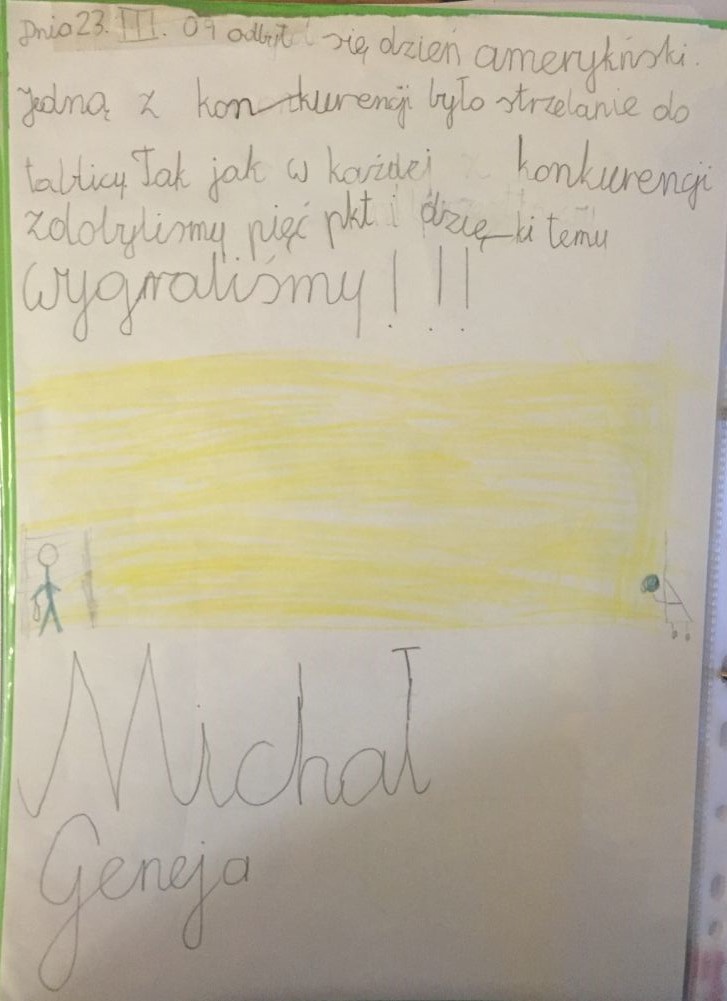 Dnia 23. III. 09 odbył się dzień amerykński.
Jedną z konkurengi było strzelanie do
tablicy. Tak jak w każdej konkurengi
zdobylismy pięć pkt i dzięki temu
wygraliśmy!!!
Michał
Geneja